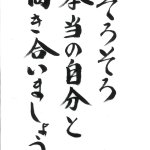 そろそろ
本当の自分と
向き合いましょう